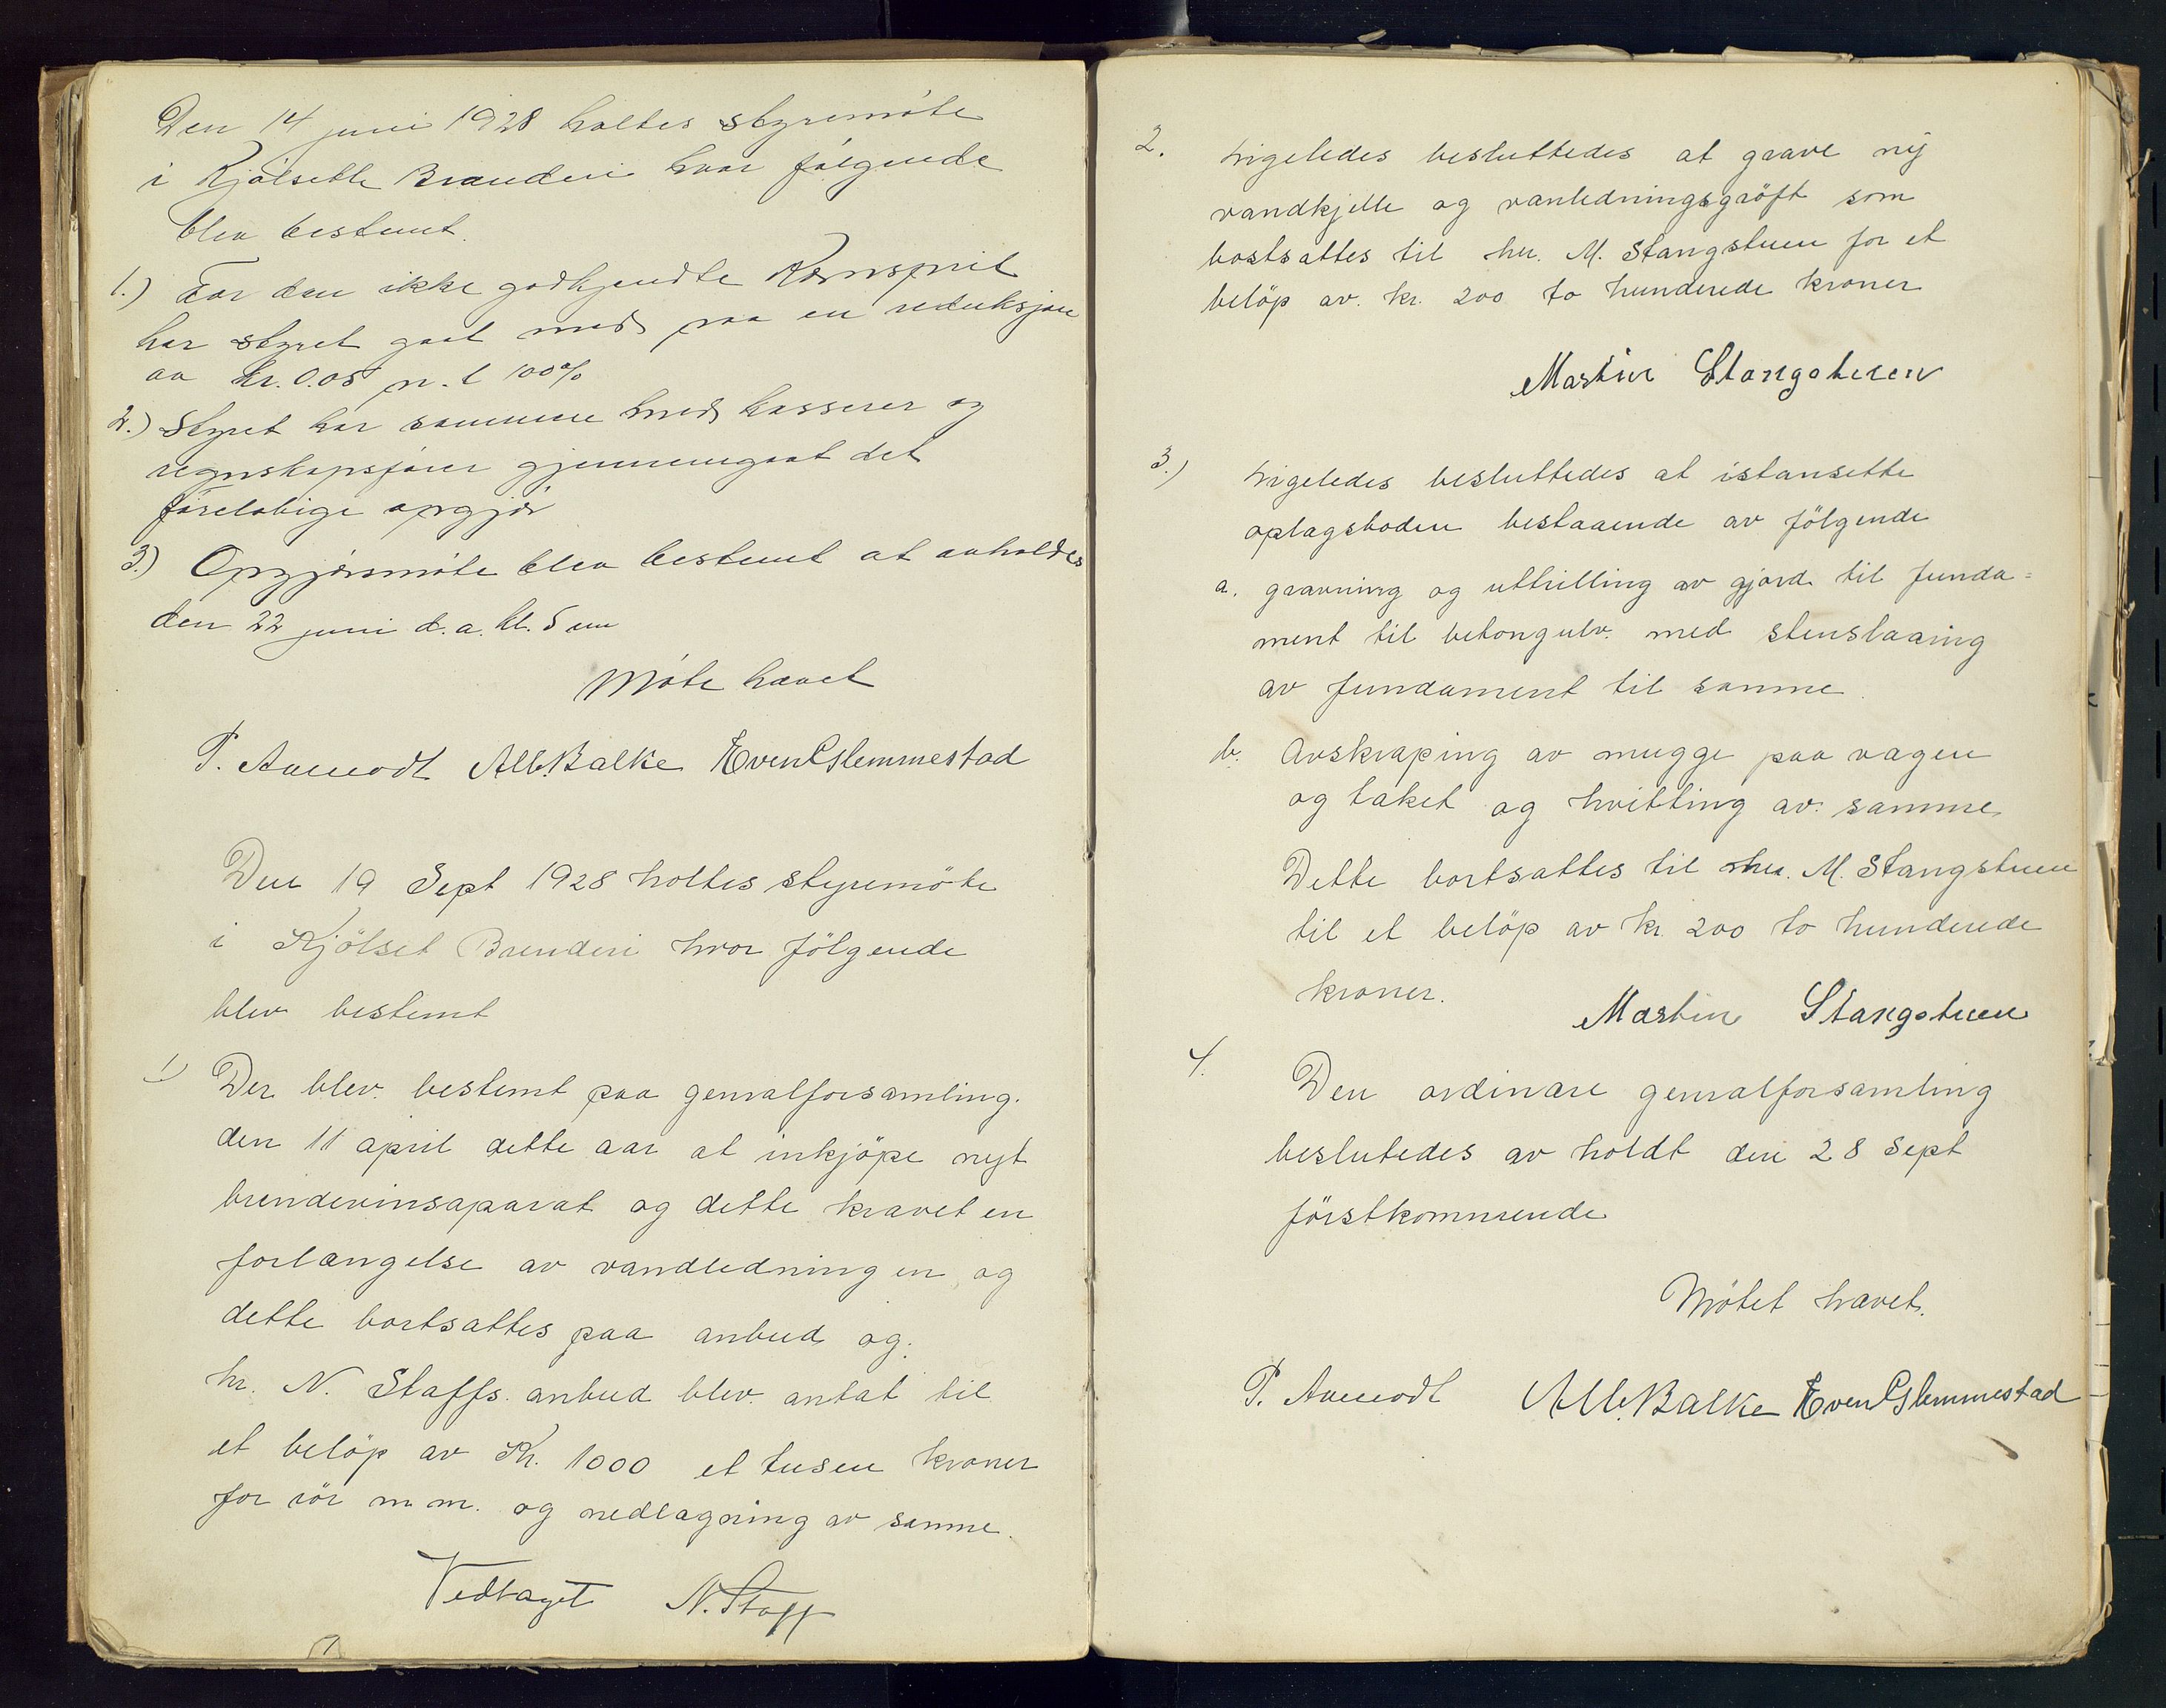 Den 14 juni 1928 holtes styremöte
i Kjölsette Brænderi hvor fölgende
blev bestemt.
1.) For den ikke godkjendte Rensprit
har styret gaat med paa en reduksjon
av kr. 0.05 pr. l 100%
2.) Styret har sammen med kasserer og
regnskapsförer gjennemgaat det
förelöbige opgjör
3.) Opgjörsmöte blev bestemt at avholdes
den 22 juni d.a. kl. 5 em
Möte hævet
P. Aamodt Alb. Balke Even Glemmestad
Den 19 Sept 1928 holtes styremöte
i Kjölset Brenderi hvor fölgende
blev bestemt
1) Der blev bestemt paa genralforsamling.
den 11 april dette aar at inkjöpe nyt
brenderinsaparat og dette kravet en
forlængelse av vandledningen og
dette bortsattes paa anbud og.
hr. N. Staffs. anbud blev antat til
et belöp av Kr. 1000 et tusen kroner
for rör m m. og nedlagning av samme.
Vedtaget N. Staff
2. Ligeledes besluttedes at grave ny
vandkjelle og vanledningsgröft som
bostsattes til hr. M. Stangstuen for et
belöp av. kr. 200 to hunderede kroner
Martin Stangstuen
3.) Ligeledes besluttedes at istansette
oplagsboden bestaaende av fölgende
a. gravning og uttrilling av gjord til funda=
ment til betongulv. med stenslaaing
av fundament til samme.
b. Avskraping av mugge paa vægen
og taket og hvitting av samme.
Dette bortsattes til hr. M. Stangstuen
til et belöp av kr. 200 to hunderede
kroner.
Martin Stangstuen
4. Den ordinære genralforsamling
beslutedes av holdt den 28 Sept
förstkommende
Mötet hævet.
P. Aamodt Alb. Balke Even Glemmestad